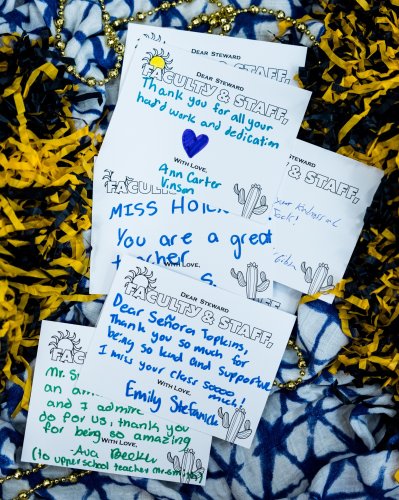 DEAR STEWARD
& STAFF,
DEAR STEWARD
FACULTY & STAFF,
Thank you for all your
hard work and dedication
WITH LOVE,
Ann Carter
Vinson
DEAR STEWARD
& STAFF,
FAC
MISS
You are a great
teacher
WITH LOVE,
S.
DEAR STEWARD
FACULTY & STAFF,
Dear Señora Topkins,
thank you so much for
being so kind and supportive
I miss your class soooo
much!
WITH LOVE,
Emily
FACU
Mr.
an
and I admire
do for us, thank you
for being so amazing
WITH LOVE,
-Ava
(to upperschool teacher